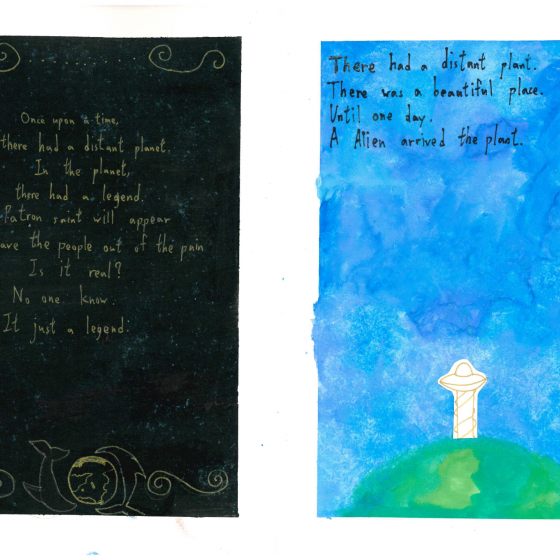 Once upon a time,
there had a distant planet.
In the planet,
there had a legend.
Patron saint will appear
ave the people out of the pain
Is it real?
No one know.
It just a legend.
There had a distant plant.
There was a beautiful place.
Until one day.
A Alien arrived the plant.